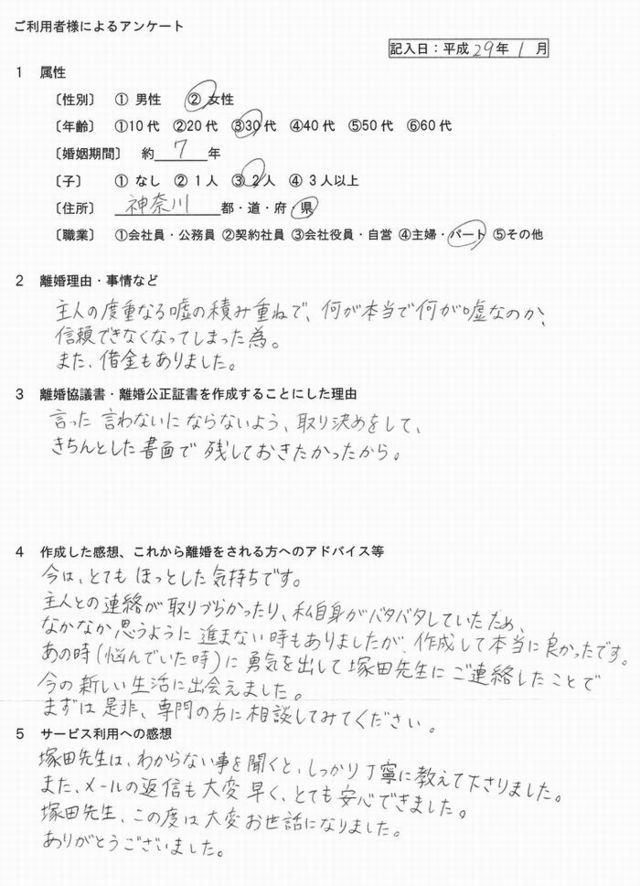 ご利用者様によるアンケート
記入日:平成 29年 1 月
1 属性
〔性別〕 ① 男性 ② 女性
〔年齢〕 ①10代 ②20代 ③30代 ④40代 ⑤50代 ⑥60代
〔婚姻期間〕 約 7 年
〔子〕 ① なし ② 1人 ③ 2人 ④ 3人以上
〔住所〕 神奈川 都・道・府・県
〔職業〕 ①会社員・公務員 ②契約社員 ③会社役員・自営 ④主婦・パート ⑤その他
2 離婚理由・事情など
主人の度重なる嘘の積み重ねで、何が本当で何が嘘なのか、
信頼できなくなってしまった為。
また、借金もありました。
3 離婚協議書・離婚公正証書を作成することにした理由
言った 言わないにならないよう、取り決めをして、
きちんとした書面で残しておきたかったから。
4 作成した感想、これから離婚をされる方へのアドバイス等
今は、とてもほっとした気持ちです。
主人との連絡が取りづらかったり、私自身がバタバタしていたため、
なかなか思うように進まない時もありましたが、作成して本当に良かったです。
あの時(悩んでいた時)に勇気を出して塚田先生にご連絡したことで
今の新しい生活に出会えました。
まずは是非、専門の方に相談してみてください。
5 サービス利用への感想
塚田先生は、わからない事を聞くと、しっかり丁寧に教えて下さりました。
また、メールの返信も大変早く、とても安心できました。
塚田先生、この度は大変お世話になりました。
ありがとうございました。